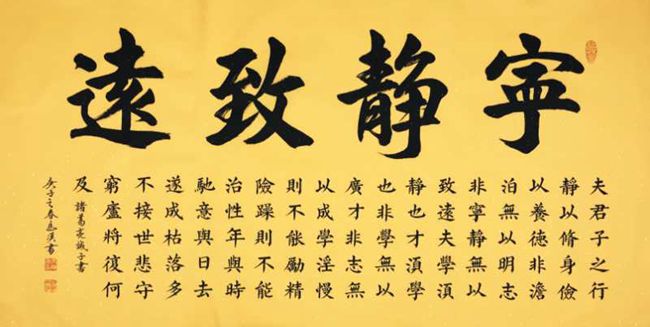 寧静致遠
夫君子之行
靜以脩身儉
以養德非澹
泊無以明志
非寧靜無以
致遠夫學湏
靜也才湏學
也非學無以
廣才非志無
以成學淫慢
則不能勵精
險躁則不能
治性年與時
馳意與日去
遂成枯落多
不接世悲守
窮廬將復何
及 諸葛亮誡子書
子之春書